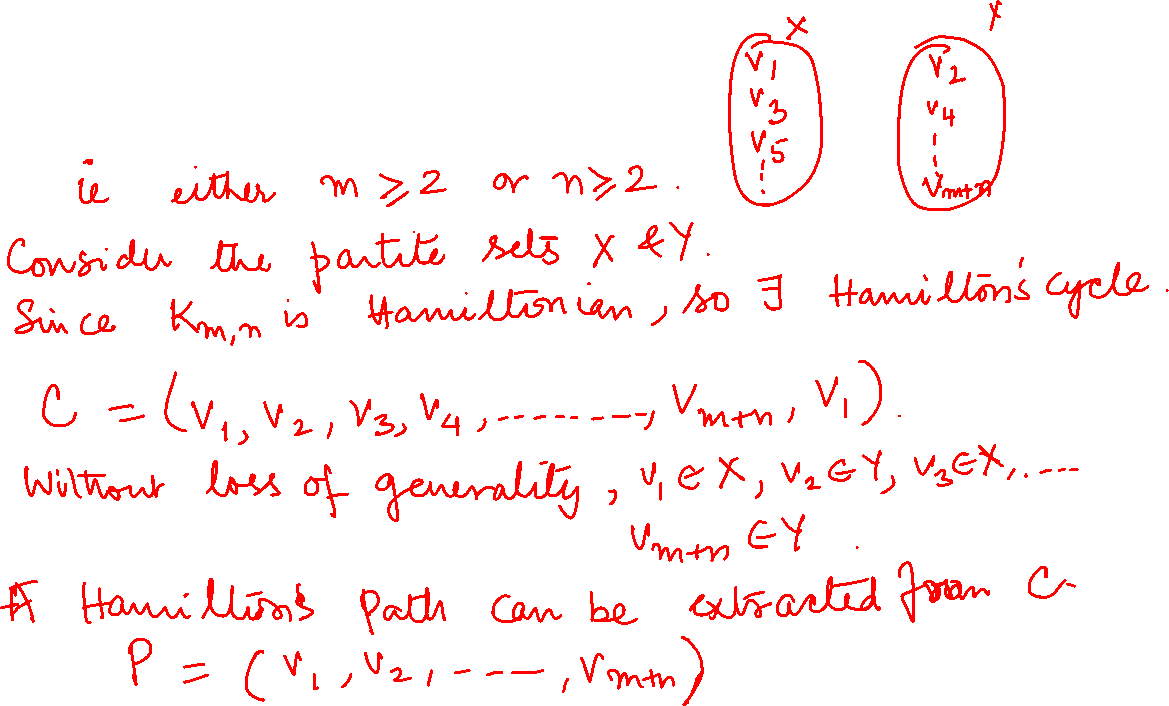 X Y
v1 v2
v3 v4
v5 vm+n
ie either m ≥ 2 or n ≥ 2.
Consider the partite sets X & Y.
Since Km,n is Hamiltonian, so ∃ Hamilton's cycle.
C = (v1, v2, v3, v4, --------, vm+n, v1).
Without loss of generality, v1 ∈ X, v2 ∈ Y, v3 ∈ X, ....
vm+n ∈ Y.
A Hamilton's Path can be extracted from C
P = (v1, v2, ----, vm+n)